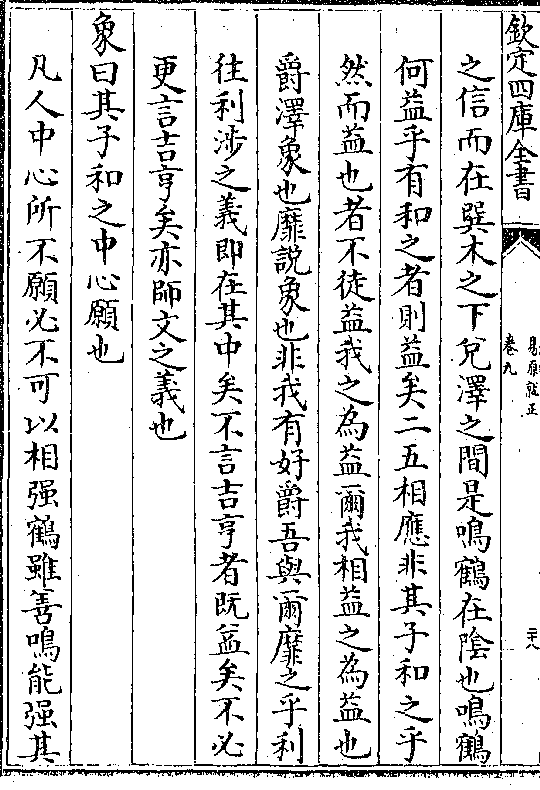 欽定四庫全書
易原就正
卷九
二十八
之信而在巽木之下兌澤之間是鳴鶴在陰也鳴鶴
何益乎有和之者則益矣二五相應非其子和之乎
然而益也者不徒益我之為益爾我相益之為益也
爵澤象也靡説象也非我有好爵吾與爾靡之乎利
往利渉之義即在其中矣不言吉亨者既益矣不必
更言吉亨矣亦師文之義也
象曰其子和之中心願也
凡人中心所不願必不可以相强鶴雖善鳴能强其